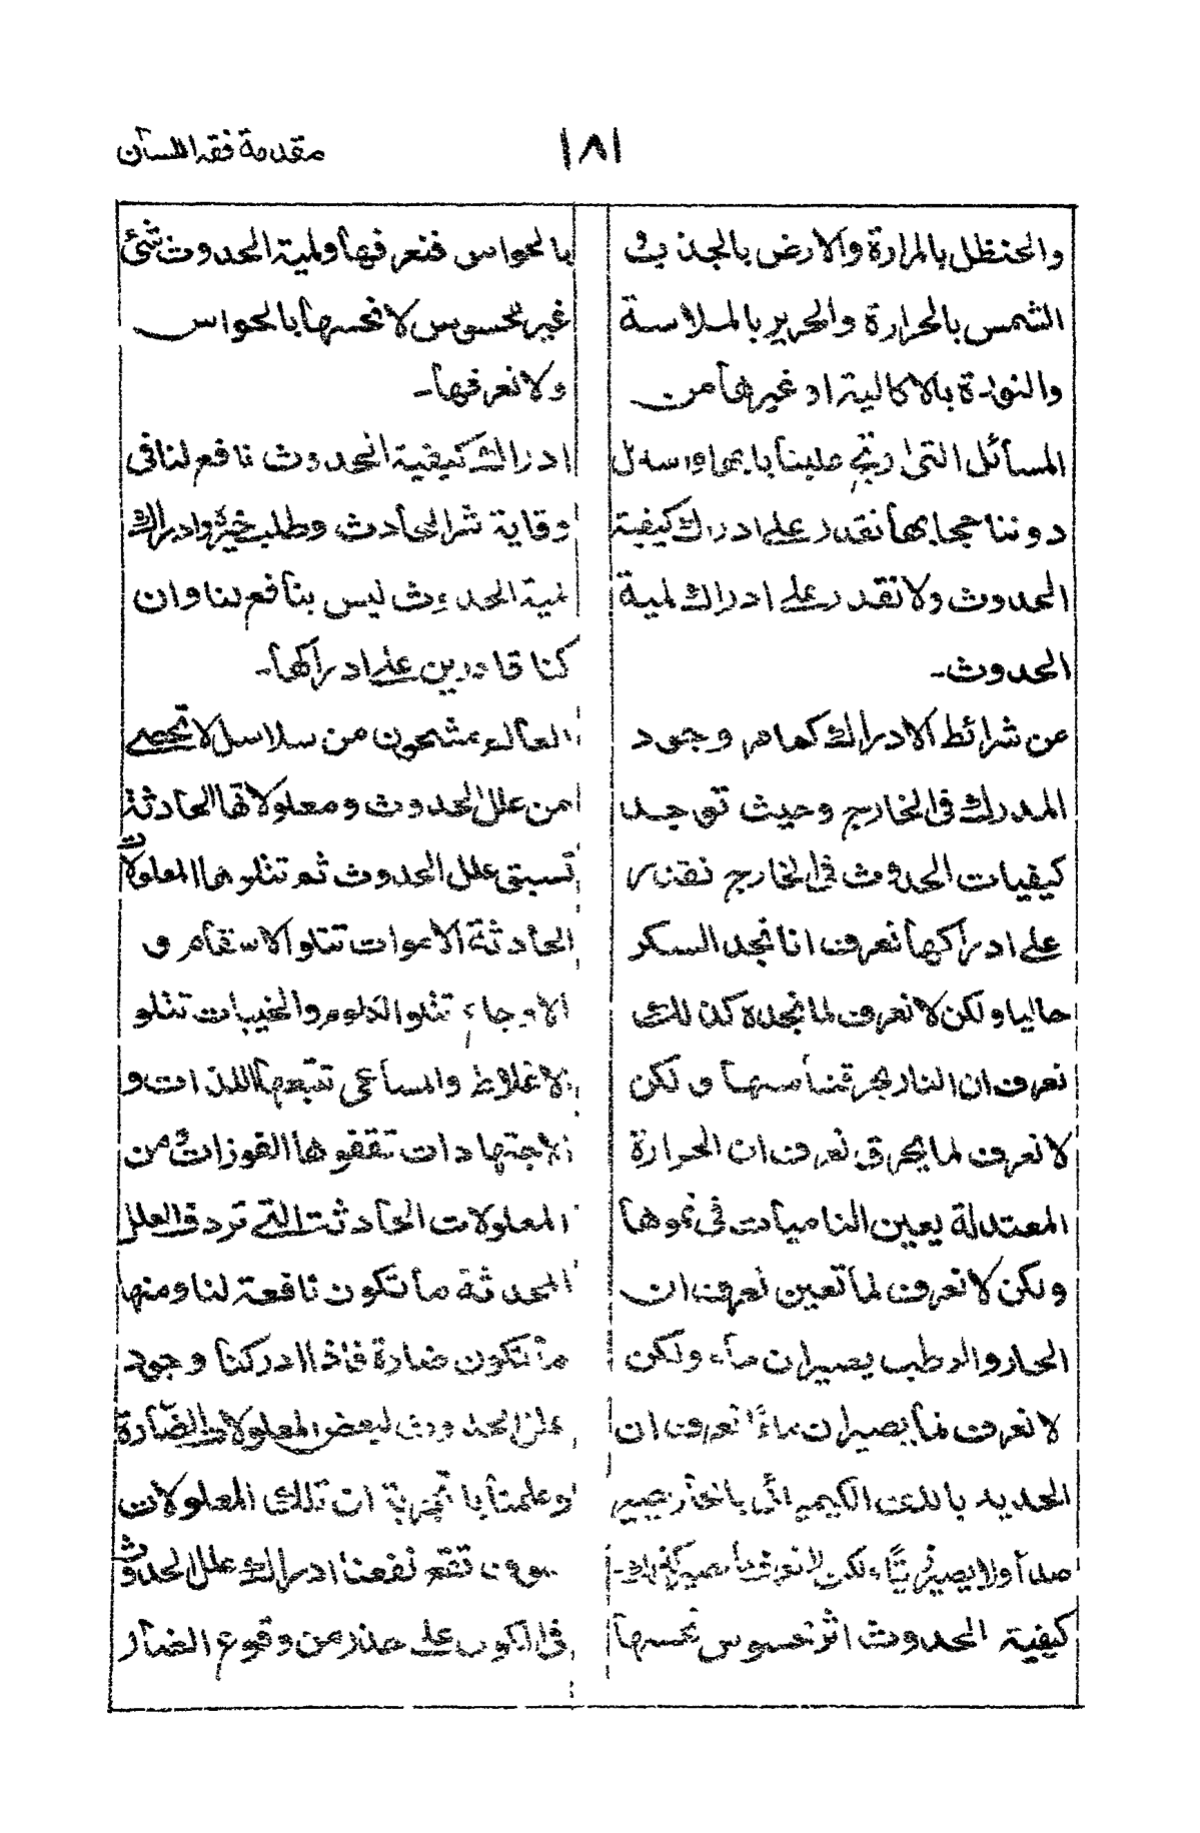 مقدمة فقه اللسان
١٨١
والحنظل بالمرارة والارض بالجذب و
الشمس بالحرارة والحرير بالملاسة
والنورة بالاكالية او غيرها من
المسائل التى رتج علينا بابها واسدل
دوننا حجابها نقدر على ادراك كيفية
الحدوث ولا نقدر على ادراك لمية
الحدوث۔
من شرائط الادراك كما مر وجود
المدرك فى الخارج وحيث توجد
كيفيات الحدوث فى الخارج نقدر
على ادراكها نعرف انا نجد السكر
حاليا ولكن لا نعرف لما نجده كذلك
نعرف ان النار يحرقنا مسها ولكن
لا نعرف لما يحرق نعرف ان الحرارة
المعتدلة يعين الناميات فى نموها
ولكن لا نعرف لما تعين نعرف ان
الحار والرطب يصيران ماء ولكن
لا نعرف لما يصيران ماءً نعرف ان
الحديد بالدعن الكيميائى بالبخار يصير
صدأ ولا يصير ولكن لا نعرف
كيفية الحدوث اثر محسوس نحسها
بالحواس فنعرفها ولمية الحدوث شئ
غير محسوس لا نحسها بالحواس
ولا نعرفها۔
ادراك كيفية الحدوث نافع لنا فى
وقاية شر الحادث وطلب خيره وادراك
لمية الحدوث ليس بنافع لنا وان
كنا قادرين على ادراكها۔
العالم مشحون من سلاسل لا تحصى
من علل الحدوث ومعلولاتها الحادثة
تسبق علل الحدوث ثم تتلوها المعلولات
الحادثة الاموات تتلو الاسقام و
الاوجاع تتلو الكلوم والخيبات تتلو
الاغلاط والمساعى تتبعها اللذات و
الاجتهادات تقفوها الفوزات من
المعلولات الحادثة التى تردف العلل
المحدثة ما تكون نافعة لنا ومنها
ما تكون ضارة فاذا ادركنا وجود
علل الحدوث لبعض المعلولات الضارة
وعلمنا بالتجربة ان تلك المعلولات
سوف تقع نفعنا ادراك علل الحدوث
فى الكون على حذر من وقوع الضار